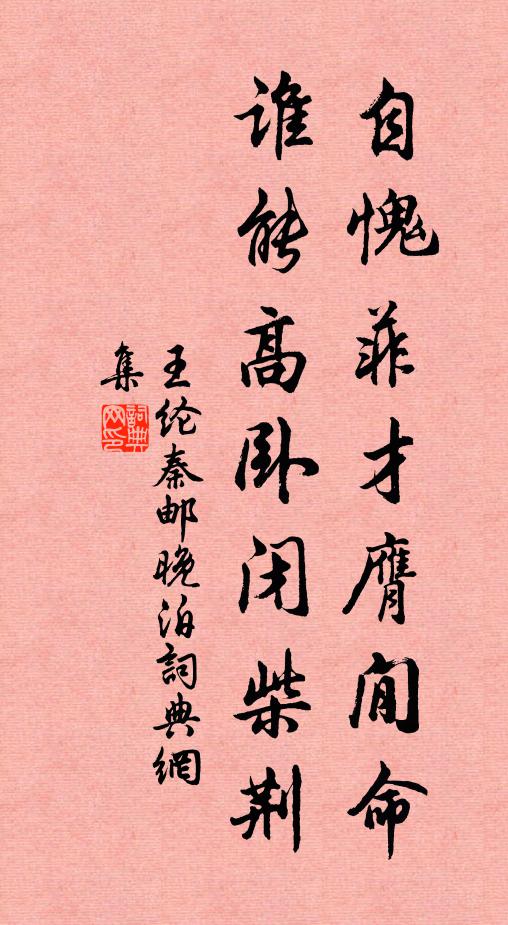 自愧菲才膺闻命
谁能高卧闭柴荆
王纶秦邮晚泊词典網
集
詞典网印